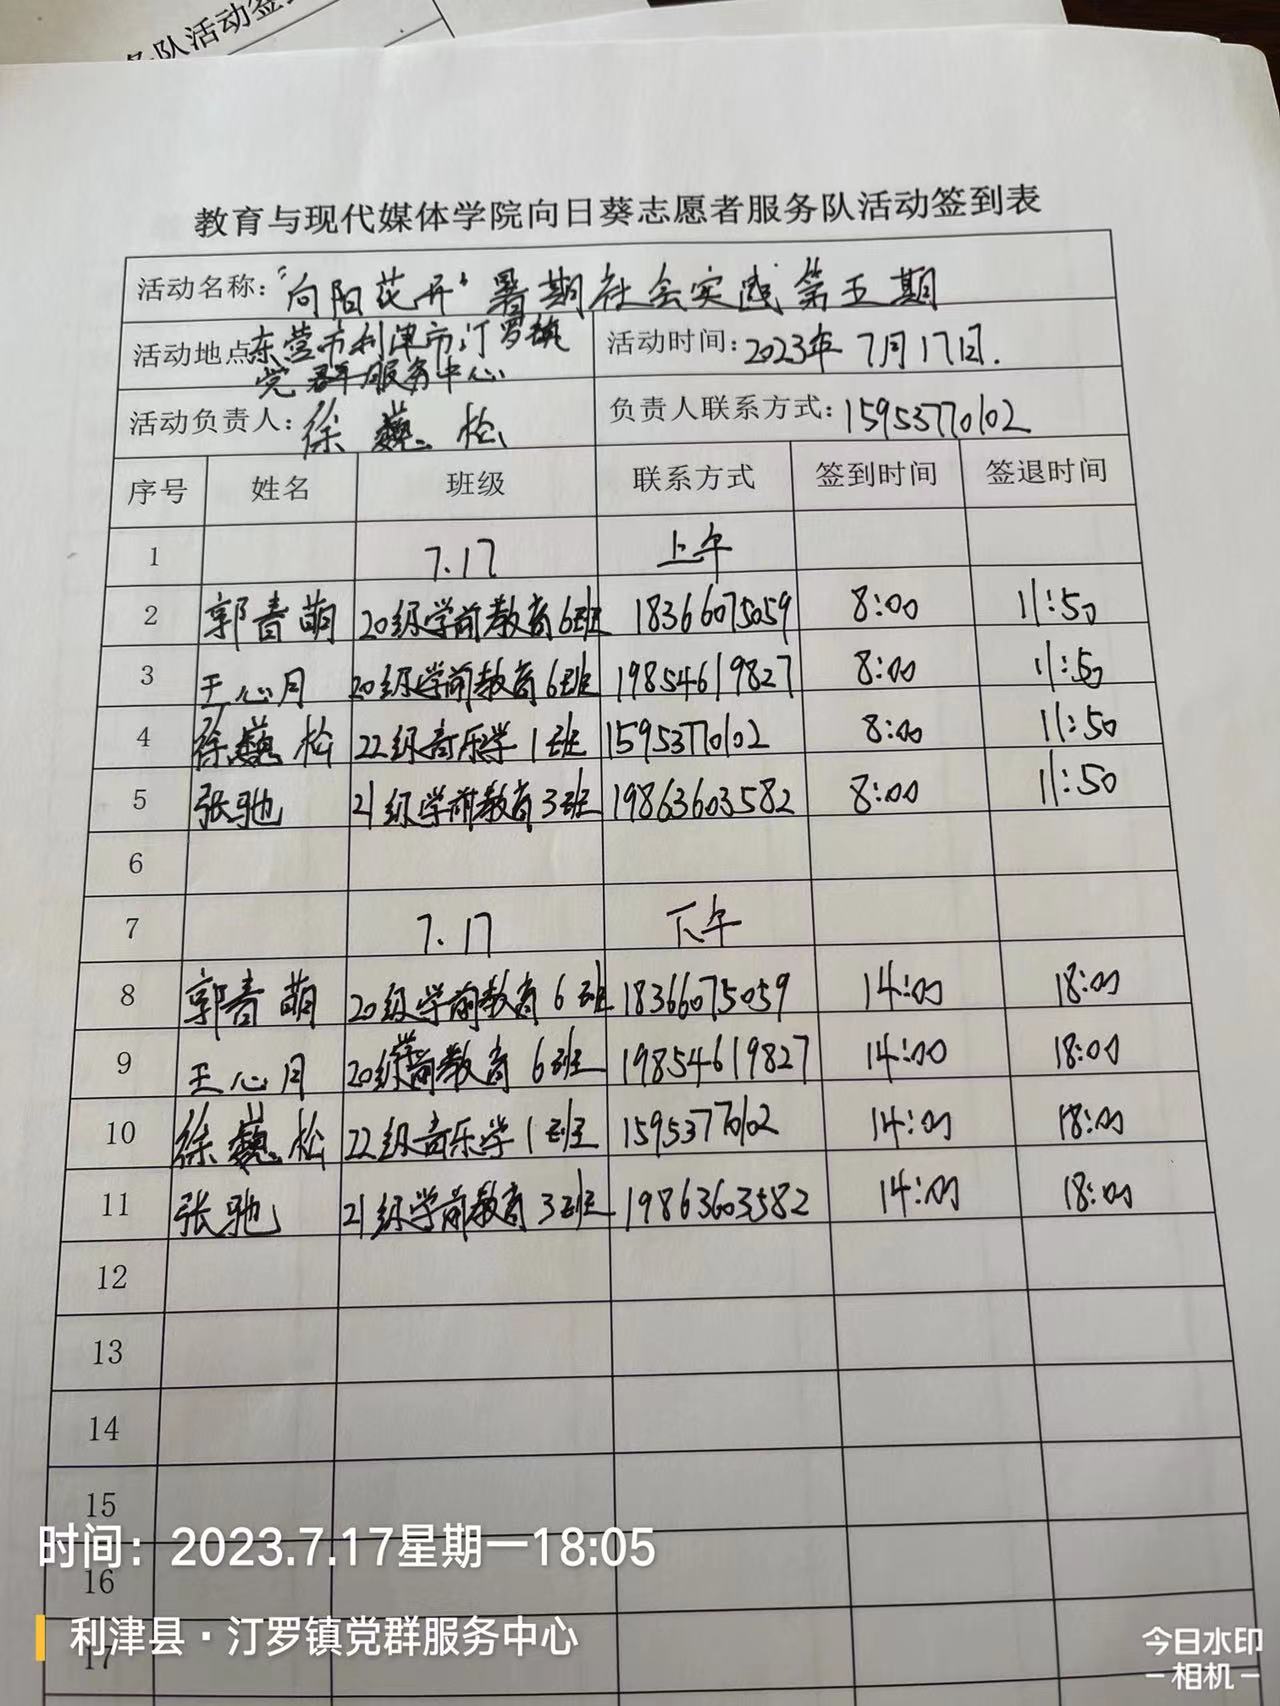 务队活动签
教育与现代媒体学院向日葵志愿者服务队活动签到表
活动名称：“向阳花开”暑期社会实践第五期
活动地点 东营市利津市汀罗镇
党群服务中心
活动时间：2023年7月17日.
活动负责人：徐巍松
负责人联系方式：15953770102
序号 姓名 班级 联系方式 签到时间 签退时间
1 7.17 上午
2 郭青萌 20级学前教育6班 18366075059 8:00 11:50
3 王心月 20级学前教育6班 19854619827 8:00 11:50
4 徐巍松 22级音乐学1班 15953770102 8:00 11:50
5 张驰 21级学前教育3班 19863603582 8:00 11:50
6
7 7.17 下午
8 郭青萌 20级学前教育6班 18366075059 14:00 18:00
9 王心月 20级学前教育6班 19854619827 14:00 18:00
10 徐巍松 22级音乐学1班 15953770102 14:00 18:00
11 张驰 21级学前教育3班 19863603582 14:00 18:00
12
13
14
15
时间：2023.7.17星期一18:05
16
利津县·汀罗镇党群服务中心
17
今日水印
-相机-